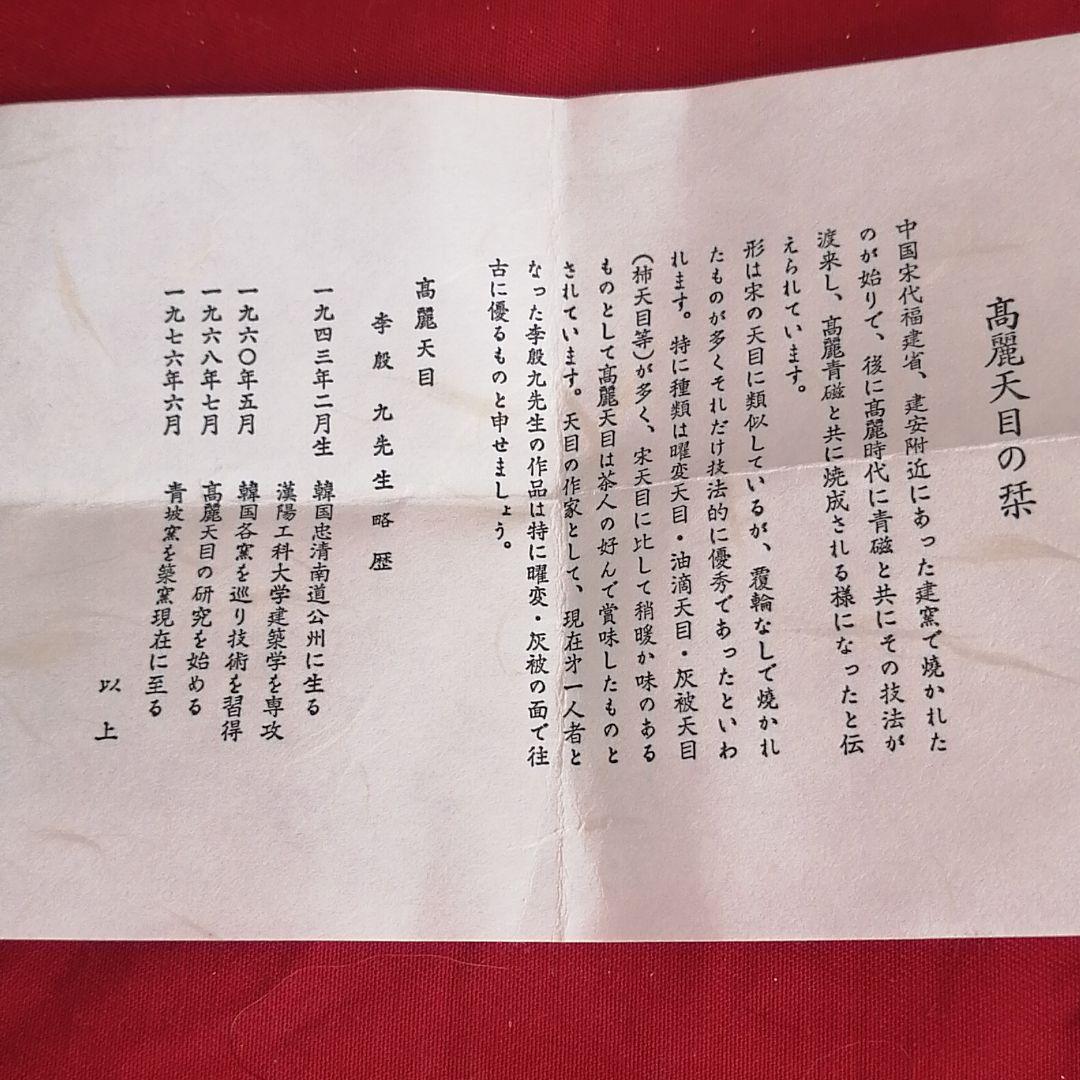 髙麗天目の栞
中国宋代福建省、建安附近にあった建窯で焼かれた
のが始りで、後に髙麗時代に青磁と共にその技法が
渡来し、髙麗青磁と共に焼成される様になったと伝
えられています。
形は宋の天目に類似しているが、覆輪なしで焼かれ
たものが多くそれだけ技法的に優秀であったといわ
れます。特に種類は曜変天目・油滴天目・灰被天目
(柿天目等)が多く、宋天目に比して稍暖か味のある
ものとして髙麗天目は茶人の好んで賞味したものと
されています。天目の作家として、現在㐧一人者と
なった李殷九先生の作品は特に曜変・灰被の面で往
古に優るものと申せましょう。
髙麗天目
李殷九先生略歴
一九四三年二月生 韓国忠清南道公州に生る
漢陽工科大学建築学を専攻
一九六〇年五月 韓国各窯を巡り技術を習得
一九六八年七月 髙麗天目の研究を始める
一九七六年六月 青坡窯を築窯現在に至る
以上